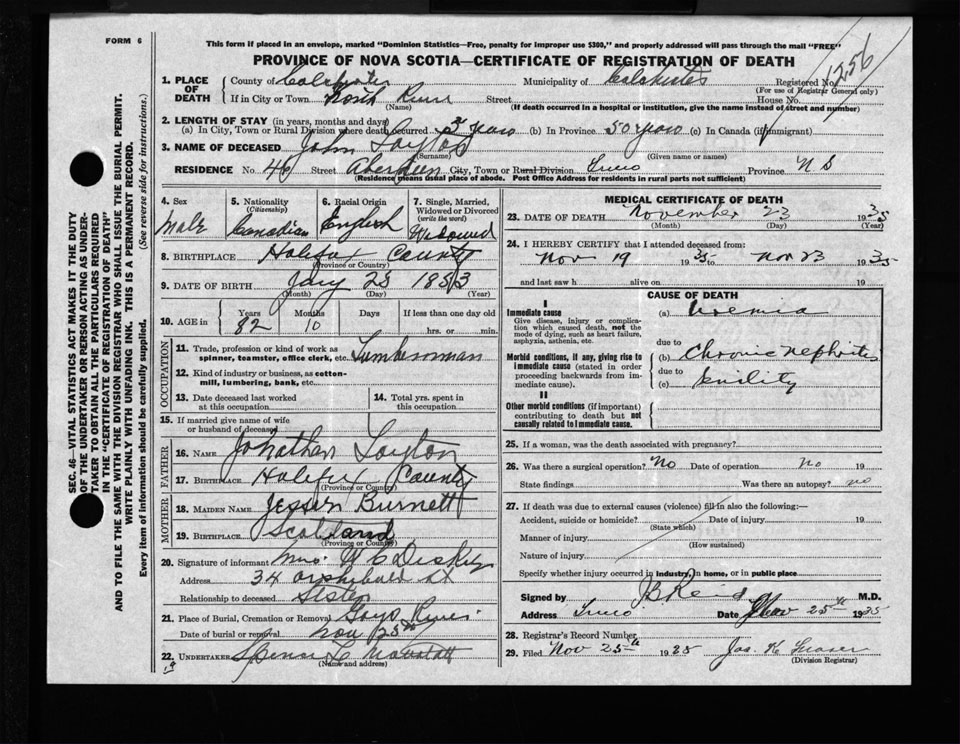 FORM 6
This form if placed in an envelope, marked "Dominion Statistics—Free, penalty for improper use $300," and properly addressed will pass through the mail "FREE"
PROVINCE OF NOVA SCOTIA—CERTIFICATE OF REGISTRATION OF DEATH
1256
1. PLACE OF DEATH
County of Colchester Municipality of Colchester Registered No.
(For use of Registrar General only)
If in City or Town North River Street House No.
(Name) (If death occurred in a hospital or institution, give the name instead of street and number)
2. LENGTH OF STAY (in years, months and days)
(a) In City, Town or Rural Division where death occurred 3 years (b) In Province 50 years (c) In Canada (if immigrant)
3. NAME OF DECEASED John Layton
(Surname) (Given name or names)
RESIDENCE No. 46 Street Aberdeen City, Town or Rural Division Truro Province N S
(Residence means usual place of abode. Post Office Address for residents in rural parts not sufficient)
4. Sex Male
5. Nationality (Citizenship) Canadian
6. Racial Origin English
7. Single, Married, Widowed or Divorced (write the word) Widowed
8. BIRTHPLACE Halifax County
(Province or Country)
9. DATE OF BIRTH Jany 23 1853
(Month) (Day) (Year)
10. AGE in Years Months Days If less than one day old
82 10 hrs. or min.
OCCUPATION
11. Trade, profession or kind of work as spinner, teamster, office clerk, etc. Lumberman
12. Kind of industry or business, as cotton-mill, lumbering, bank, etc.
13. Date deceased last worked at this occupation
14. Total yrs. spent in this occupation
15. If married give name of wife or husband of deceased
FATHER
16. NAME Johnathan Layton
17. BIRTHPLACE Halifax County
(Province or Country)
MOTHER
18. MAIDEN NAME Jessie Burnett
19. BIRTHPLACE Scotland
(Province or Country)
20. Signature of informant Mrs. W C
Address 34 Archibald St
Relationship to deceased Sister
21. Place of Burial, Cremation or Removal Goys River
Date of burial or removal Nov 25th
22. UNDERTAKER
(Name and address)
MEDICAL CERTIFICATE OF DEATH
23. DATE OF DEATH November 23 1935
(Month) (Day) (Year)
24. I HEREBY CERTIFY that I attended deceased from:
Nov 19 1935 to Nov 23 1935
and last saw h alive on 19
CAUSE OF DEATH
I
Immediate cause
Give disease, injury or complication which caused death, not the mode of dying, such as heart failure, asphyxia, asthenia, etc.
(a) Uremia
due to
Morbid conditions, if any, giving rise to immediate cause (stated in order proceeding backwards from immediate cause).
(b) Chronic nephritis
due to
(c) Senility
II
Other morbid conditions (if important) contributing to death but not causally related to immediate cause.
25. If a woman, was the death associated with pregnancy?
26. Was there a surgical operation? No Date of operation no 19
State findings Was there an autopsy? no
27. If death was due to external causes (violence) fill in also the following:—
Accident, suicide or homicide? Date of injury 19
(State which)
Manner of injury
(How sustained)
Nature of injury
Specify whether injury occurred in industry, in home, or in public place
Signed by J B Reid M.D.
Address Truro Date Nov 25th 1935
28. Registrar's Record Number
29. Filed Nov 25th 1935 Jas. K Fraser
(Division Registrar)
SEC. 46—VITAL STATISTICS ACT MAKES IT THE DUTY OF THE UNDERTAKER OR PERSON ACTING AS UNDERTAKER TO OBTAIN ALL THE PARTICULARS REQUIRED IN THE "CERTIFICATE OF REGISTRATION OF DEATH"
AND TO FILE THE SAME WITH THE DIVISION REGISTRAR WHO SHALL ISSUE THE BURIAL PERMIT.
WRITE PLAINLY WITH UNFADING INK. THIS IS A PERMANENT RECORD.
Every item of information should be carefully supplied. (See reverse side for instructions.)